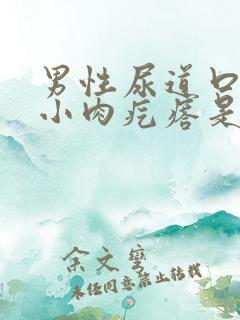 男性尿道口
小肉疙瘩是
余文弯
未任同意禁止转载